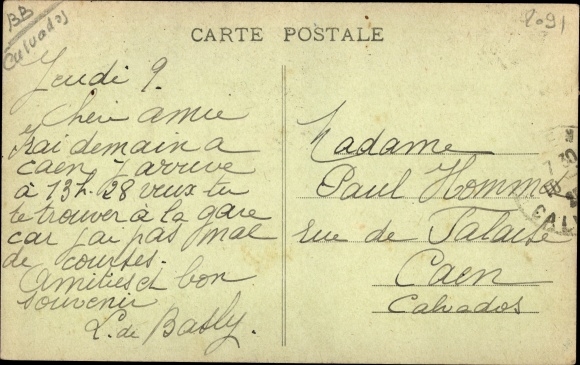 BB
Calvados
2091
CARTE POSTALE
Jeudi 9.
Chère amie
J'irai demain a
caen j'arrive
à 13h.28 veux tu
te trouver à la gare
car j'ai pas mal
de courses.
Amitiés et bon
souvenir
L. de Bally.
Madame
Paul Hommet
rue de Falaise
Caen
Calvados
7 30
CAL